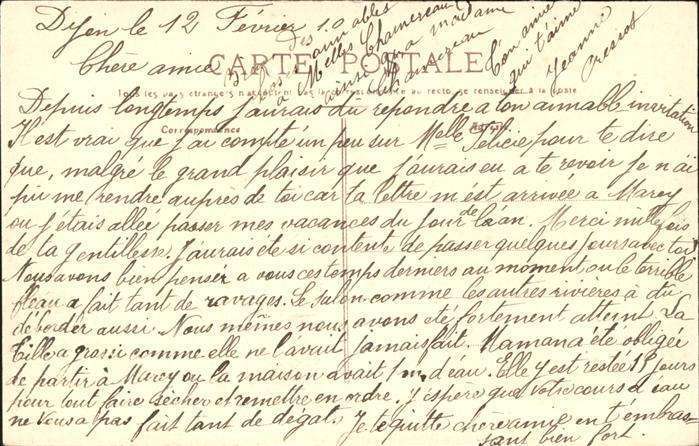 Dijon le 12 Février 10
CARTE POSTALE
Chère amie
Correspondance
Depuis longtemps j'aurais du repondre a ton aimable invitation
Il est vrai que j'ai compté un peu sur Melle Félicie pour te dire
que, malgré le grand plaisir que j'aurais eu a te revoir je n'ai
pu me rendre auprès de toi car ta lettre m'est arrivée a Marcy
ou j'étais allée passer mes vacances du Jour de la an. Merci mille fois
de ta gentillesse. J'aurais été si contente de passer quelques Jours avec toi
Nous avons bien penser a vous ces temps derniers au moment ou le terrible
fleau a fait tant de ravages. Le salon comme les autres rivières à du
déborder aussi. Nous mêmes nous avons été fortement atteint. La
Tille a grossi comme elle ne l'avait jamais fait. Mamana été obligée
de partir à Marcy ou la maison avait 1m. d'eau. Elle y est restée 15 jours
pour tout faire sécher et remettre en ordre. J'espère que votre cours d'eau
ne vous a pas fait tant de dégat. Je te quitte chère amie en t'embras
sant bien fort.
Ton amie
qui t'aime
Jeanne
Pressot
aimables
à Melles Chamereau
ainsi qu'a madame
Chamereau